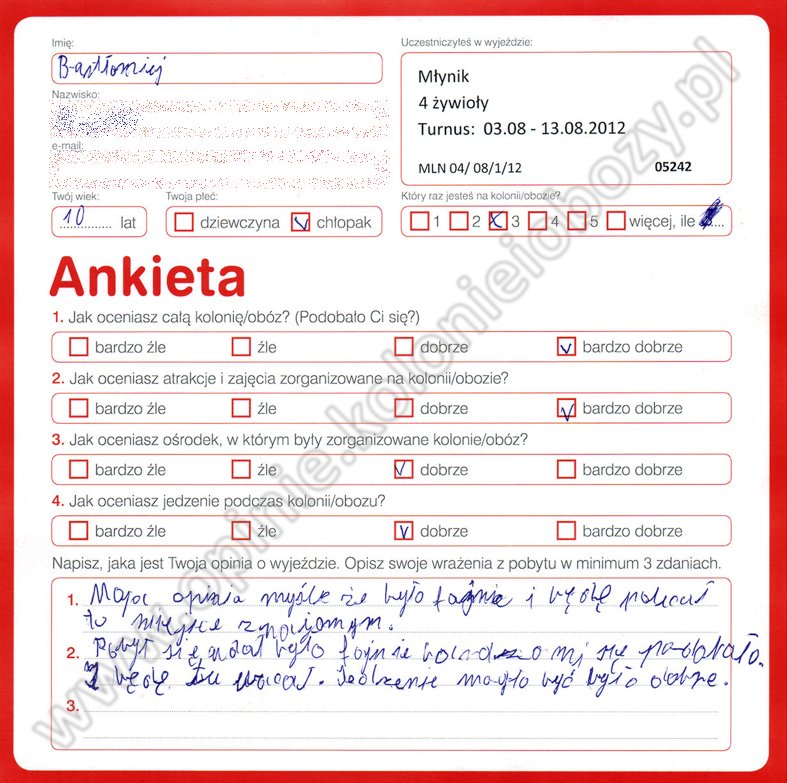 Imię:
Bartłomiej
Nazwisko:
e-mail:
Uczestniczyłeś w wyjeździe:
Młynik
4 żywioły
Turnus: 03.08 - 13.08.2012
MLN 04/ 08/1/12 05242
Twój wiek:
10 lat
Twoja płeć:
dziewczyna chłopak
Który raz jesteś na kolonii/obozie?
1 2 3 4 5 więcej, ile ....
Ankieta
1. Jak oceniasz całą kolonię/obóz? (Podobało Ci się?)
bardzo źle źle dobrze bardzo dobrze
2. Jak oceniasz atrakcje i zajęcia zorganizowane na kolonii/obozie?
bardzo źle źle dobrze bardzo dobrze
3. Jak oceniasz ośrodek, w którym były zorganizowane kolonie/obóz?
bardzo źle źle dobrze bardzo dobrze
4. Jak oceniasz jedzenie podczas kolonii/obozu?
bardzo źle źle dobrze bardzo dobrze
Napisz, jaka jest Twoja opinia o wyjeździe. Opisz swoje wrażenia z pobytu w minimum 3 zdaniach.
1. Moja opinia myśle że było fajnie i będę polecał
to miejsce znajomym.
2. Pobyt się udał było fajnie bardzo mi się podobało.
I będę tu wracał. Jedzenie mogło być było dobre.
3.
www.opinie.kolonieiobozy.pl